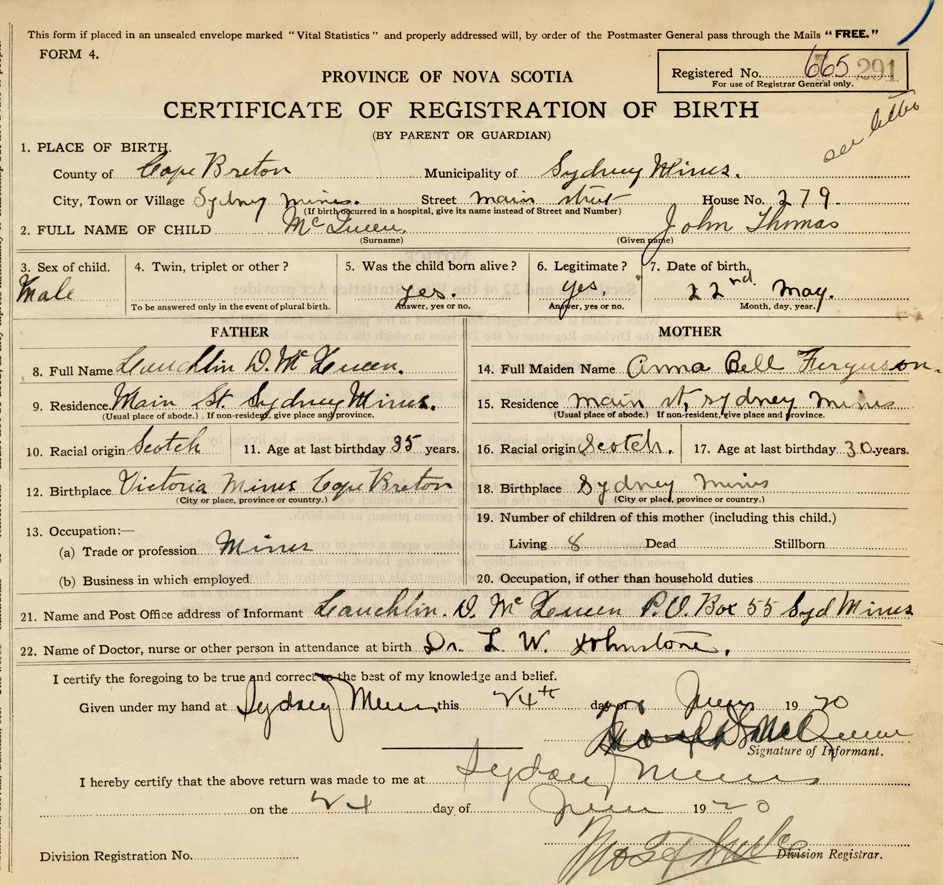 This form if placed in an unsealed envelope marked "Vital Statistics" and properly addressed will, by order of the Postmaster General pass through the Mails "FREE."
FORM 4.
Registered No. 665 291
For use of Registrar General only.
PROVINCE OF NOVA SCOTIA
CERTIFICATE OF REGISTRATION OF BIRTH
(BY PARENT OR GUARDIAN)
see letter
1. PLACE OF BIRTH.
County of Cape Breton Municipality of Sydney Mines.
City, Town or Village Sydney mines. Street main street House No. 279.
(If birth occurred in a hospital, give its name instead of Street and Number)
2. FULL NAME OF CHILD McQueen, John Thomas
(Surname) (Given name)
3. Sex of child. 4. Twin, triplet or other? 5. Was the child born alive? 6. Legitimate? 7. Date of birth.
Male yes. yes, 22nd May.
To be answered only in the event of plural birth. Answer, yes or no. Answer, yes or no. Month, day, year.
FATHER MOTHER
8. Full Name Lauchlin D. McQueen. 14. Full Maiden Name Anna Bell Ferguson.
9. Residence Main St. Sydney Mines. 15. Residence main st, sydney mines
(Usual place of abode.) If non-resident, give place and province. (Usual place of abode.) If non-resident, give place and province.
10. Racial origin Scotch 11. Age at last birthday 35 years. 16. Racial origin Scotch. 17. Age at last birthday 30 years.
12. Birthplace Victoria Mines Cape Breton 18. Birthplace Sydney mines
(City or place, province or country.) (City or place, province or country.)
13. Occupation:— 19. Number of children of this mother (including this child.)
(a) Trade or profession Miner Living 8 Dead Stillborn
(b) Business in which employed 20. Occupation, if other than household duties
21. Name and Post Office address of Informant Lauchlin. D. McQueen P.O. Box 55 Syd Mines
22. Name of Doctor, nurse or other person in attendance at birth Dr. L. W. Johnstone.
I certify the foregoing to be true and correct to the best of my knowledge and belief.
Given under my hand at Sydney Mines this 24th day of June 1920
Signature of Informant.
I hereby certify that the above return was made to me at Sydney Mines
on the 24 day of June 1920
Division Registration No. Division Registrar.